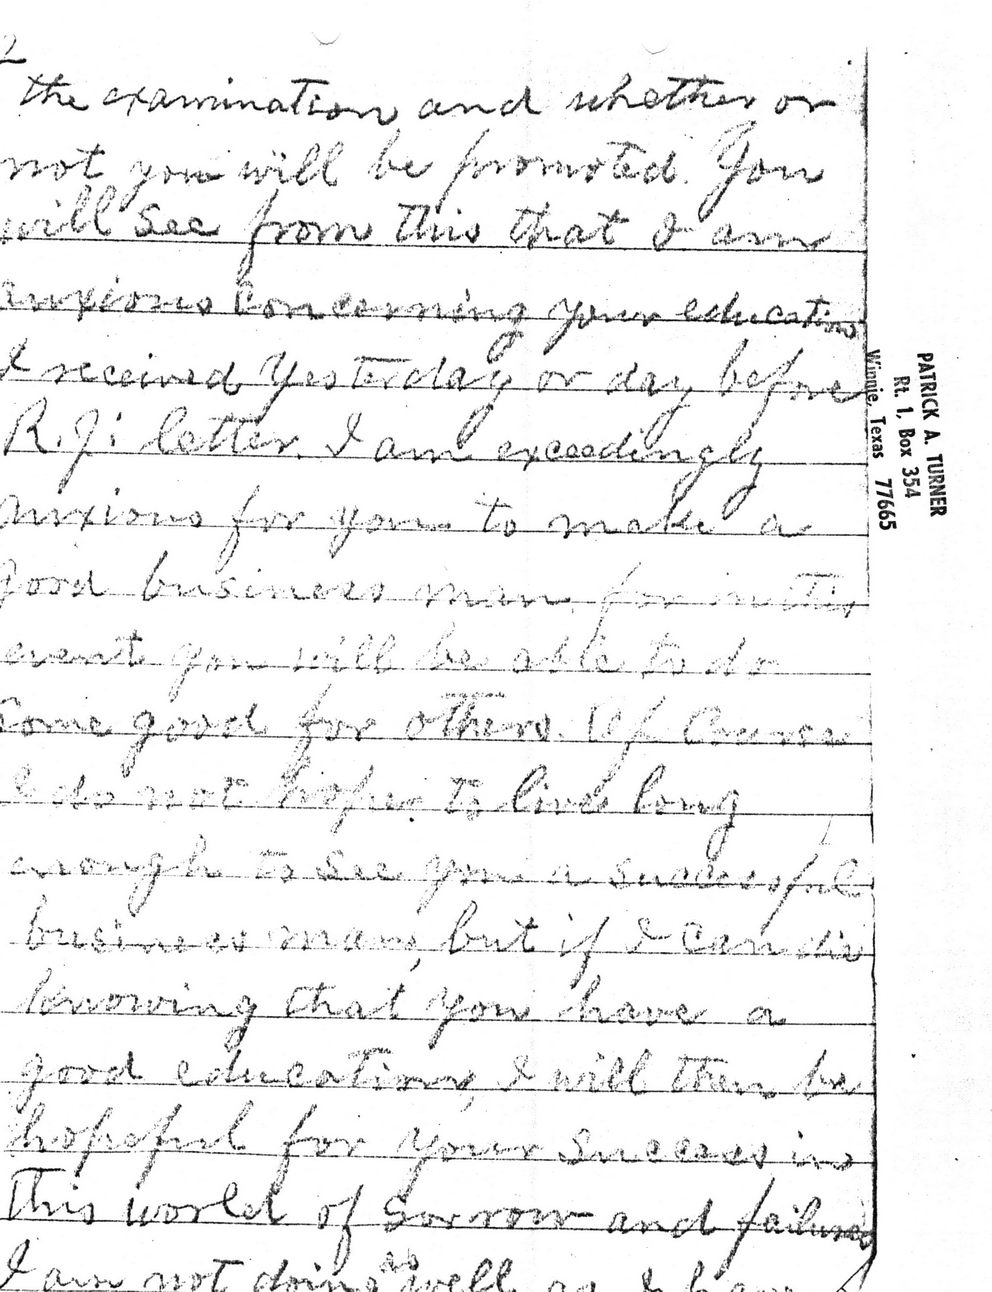 2
the examination and whether or
not you will be promoted. You
will see from this that I am
anxious concerning your education
I received Yesterday or day before
R. J.'s letter. I am exceedingly
anxious for you to make a
good business man, for in this
event you will be able to do
some good for others. Of Course
I do not hope to live long
enough to see you a successful
business man, but if I can die
knowing that you have a
good education, I will then be
hopeful for your success in
this world of sorrow and failures
I am not doing as well as I have
PATRICK A. TURNER
Rt. 1, Box 354
Winnie, Texas 77665